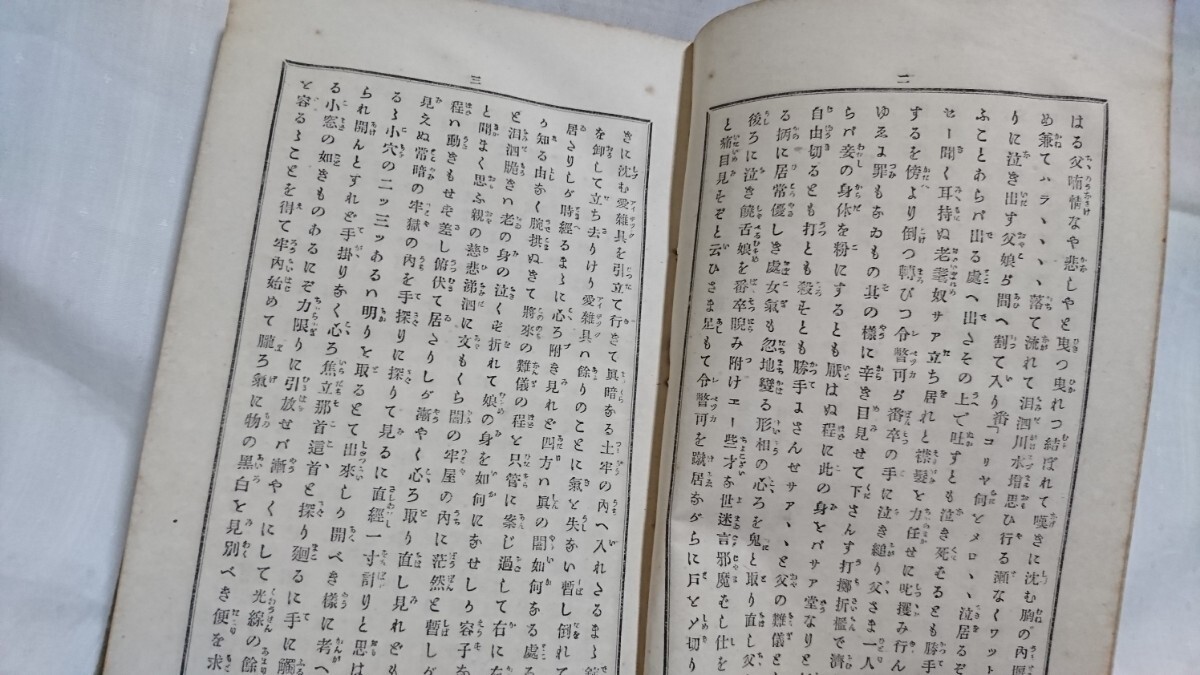 二
はる父喃情なや悲しやと曳つ曳れつ結ぼれて嘆きに沈む胸の內
め兼てハラ、、、落て流れて汨泗川水増思ひ行る瀬なくワット
りに泣き出す父娘が間へ割て入り番「コリヤ何とメロ、、泣居るぞ
ふことわらバ出る處へ出さその上で吐すとも泣き死をるとも勝手
せー聞く耳持ぬ老耄奴サア立ち居れと襟髮を力任せに攫み行ん
するを傍より倒つ轉びつ令瞥可が番卒の手に泣き縋り父さま一人
ゆゑま罪もなゐもの其の樣に辛き目見せて下さんす打擲折檻で濟
らバ妾の身体を粉にするとも厭はぬ程に此の身をバサア堂なりと
自由切るとも打とも殺をとも勝手まさんせサア、、と父の難儀と
る柄に居常優しき處女氣も忽地變る形相の心ろを鬼と取り直し父
後ろに泣き饒舌娘を番卒睨み附けエー些才な世迷言邪魔をし仕を
と痛目見をぞと云ひさま足もて令瞥可を蹴居ながらに戸とソ切り
三
きに沈む愛雜具を引立て行きて眞暗なる土牢の內へ入れさるまゝ錠
を卸して立ち去りけり愛雜具ハ餘りのことに氣と失ない暫し倒れて
居さりしが時經るまゝに心ろ附き見れど四方ハ眞の闇如何なる處
う知る由なく腕拱ぬきて將來の難儀の程と只管に案じ過して右に左
と汨泗脆きハ老の身の泣くを折れて娘の身を如何になせしう容子を
と聞まく思ふ親の慈悲涕泗に文もくら闇の牢屋の內に茫然と暫しが
程ハ動きもせを差し俯伏て居さりしが漸やく心ろ取り直し見れども
見えぬ常暗の牢獄の內を手探りに探りて見るに直經一寸計りと思は
るゝ小穴の二ッ三ッあるハ明りを取るとて出來しり開べき樣に考へ
られ開んとすれど手掛りなく心ろ焦立那首這首と探り廻るに手に觸
る小窓の如きものあるにぞ力限りに引放せバ漸やくにして光線の餘
と容るゝことを得て牢內始めて朧ろ氣に物の黒白を見別べき便を求